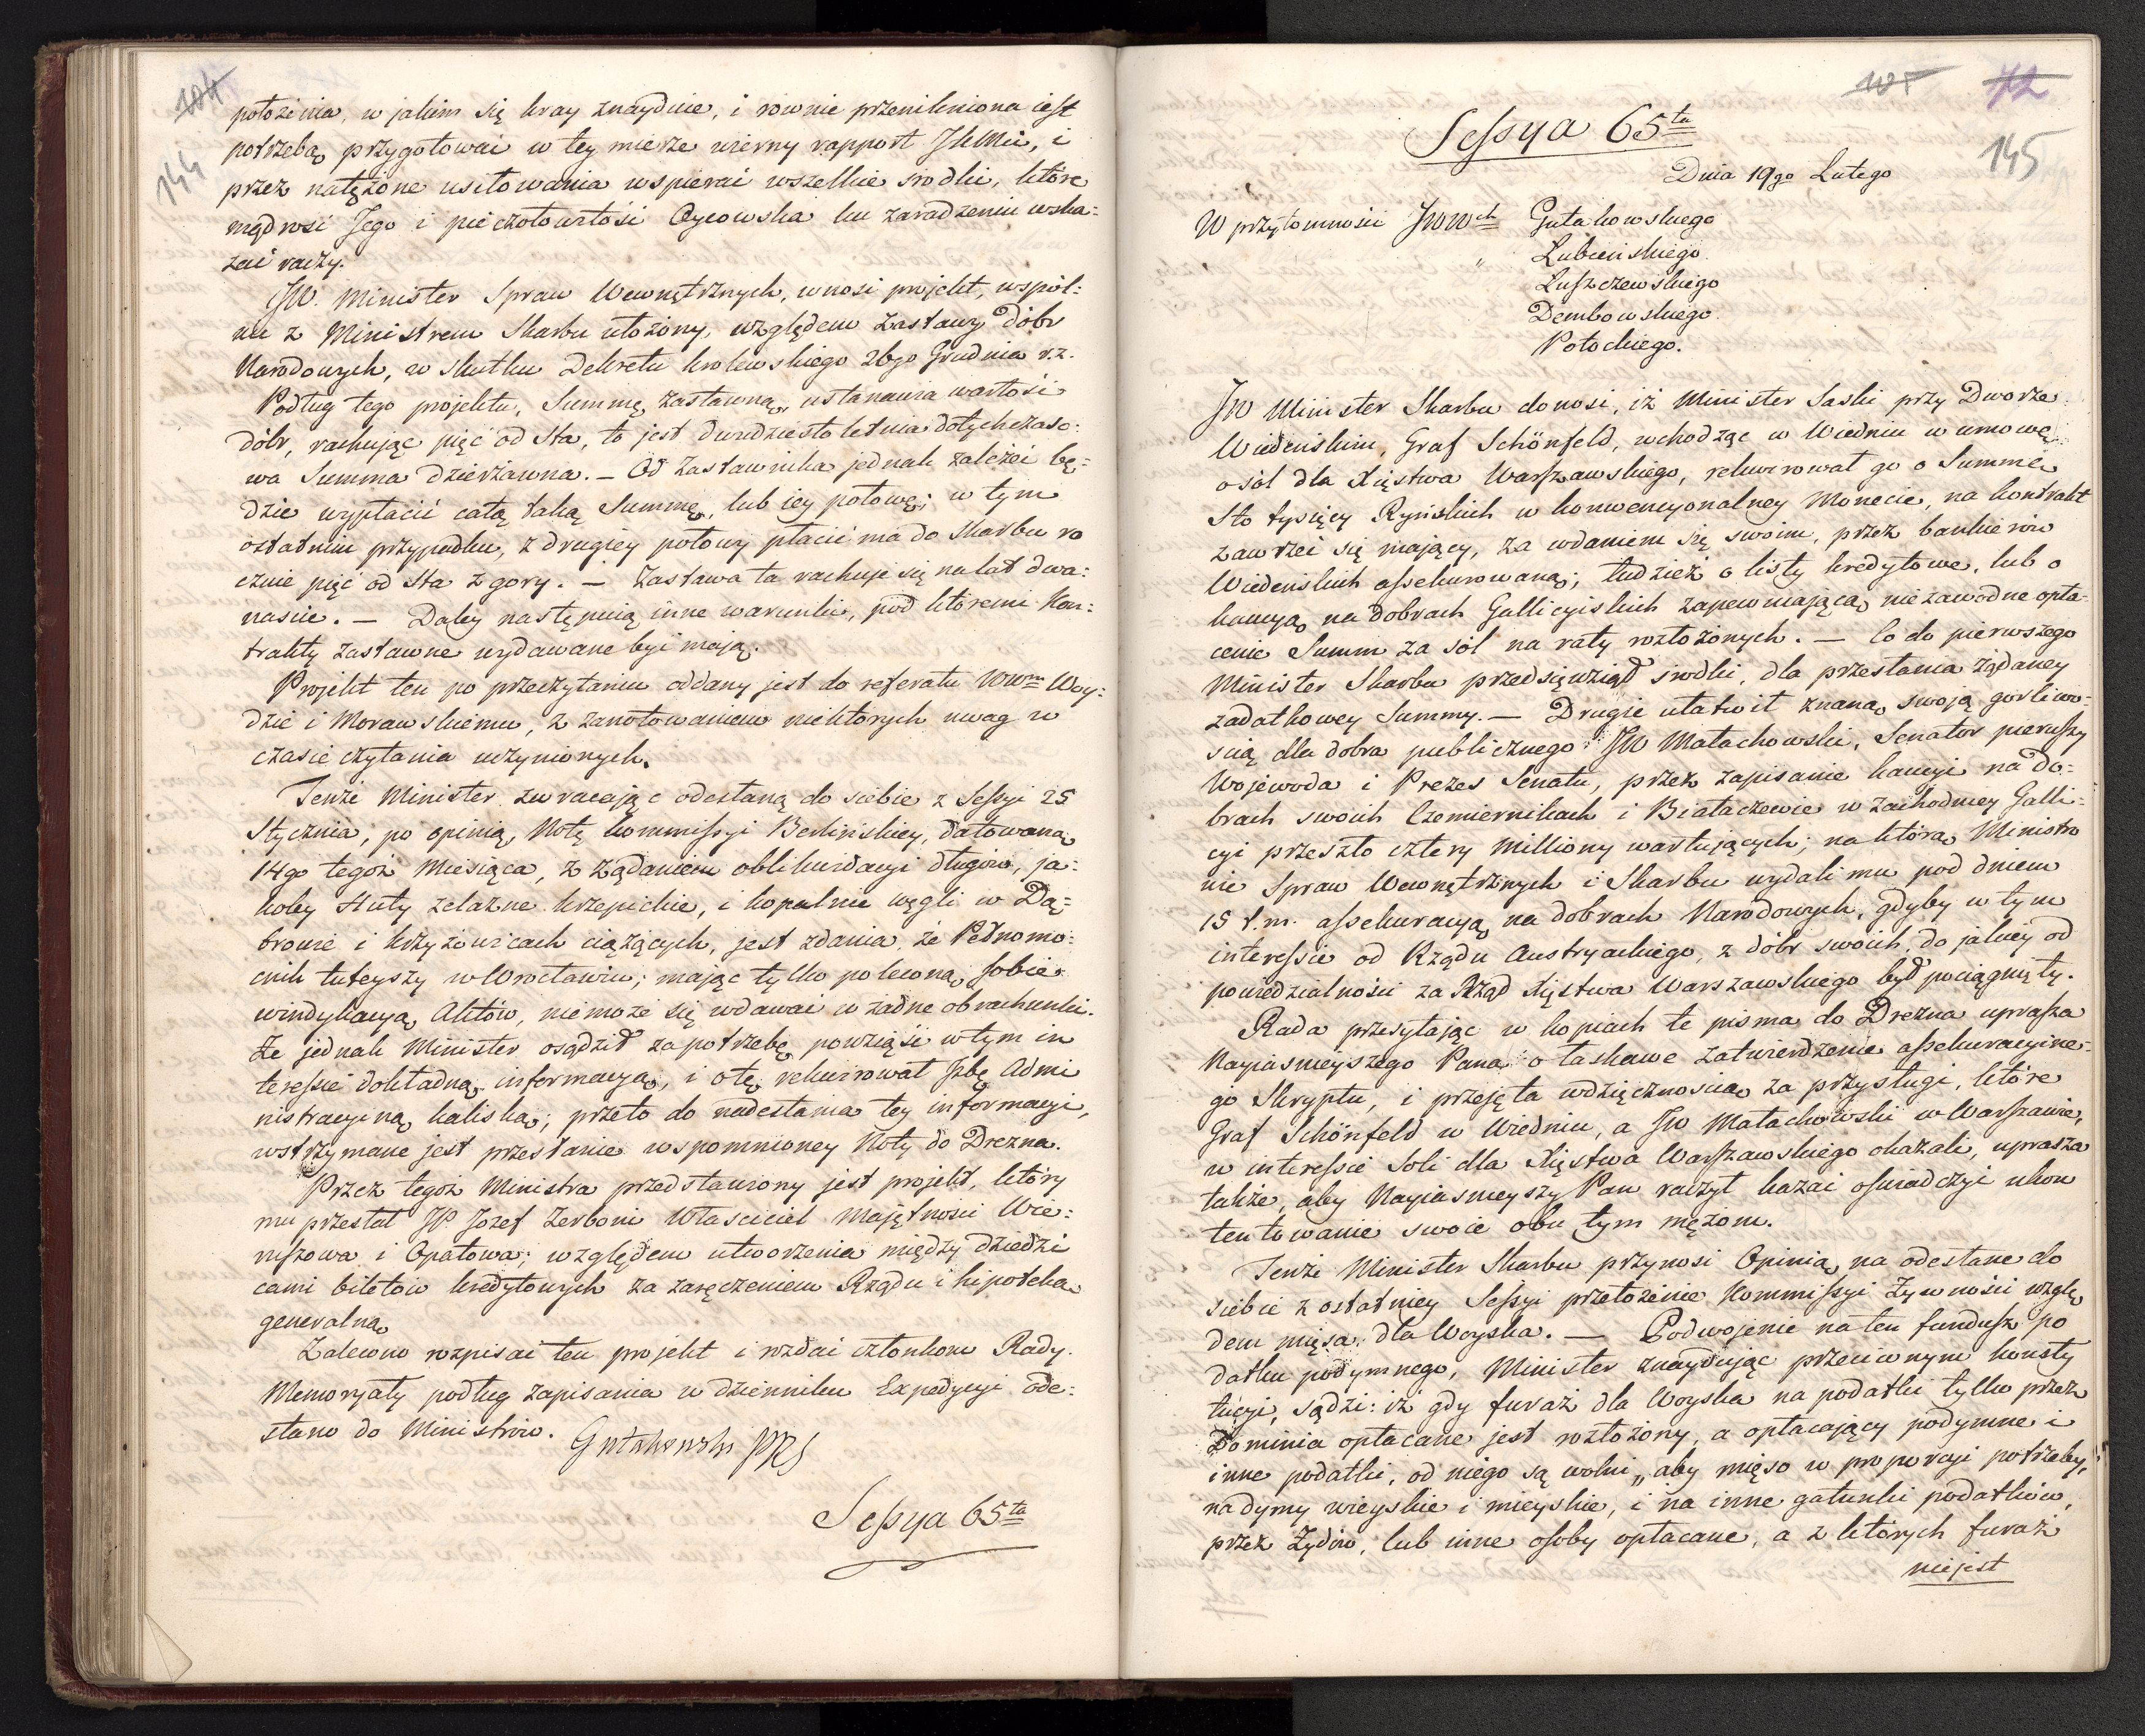 104
144
położenia, w jakim się kray znayduie, i rownie przenikniona iest
potrzebą przygotować w tey mierze wierny rapport JKMci, i
przez natężone usiłowania wspierać wszelkie srodki, które
mądrość Jego i pieczołowitość Oycowska ku zaradzeniu wska=
zać raczy.
JW. Minister Spraw Wewnętrznych, wnosi projekt, wspól=
nie z Ministrem Skarbu ułożony, względem zastawy dóbr
Narodowych, w skutku Dekretu krolewskiego 26go Grudnia r.z.
Podług tego projektu, Summę zastawną, ustanawia wartość
dóbr, rachując pięć od Sta, to jest dwudziestoletnia dotychczaso=
wa Summa dzierżawna. — Od Zastawnika jednak zależeć bę=
dzie wypłacić całą taką Summę, lub iey połowę; w tym
ostatnim przypadku, z drugiey połowy płacić ma do Skarbu ro
cznie pięć od Sta z gory. — Zastawa ta rachuje się na lat dwa=
nascie. — Daley następuią inne warunki, pod któremi Kon=
trakty zastawne wydawane być mają.
Projekt ten po przeczytaniu oddany jest do referatu WWm Woy=
dzie i Morawskiemu, z zanotowaniem niektorych uwag w
czasie czytania uczynionych.
Tenże Minister zwracając odesłaną do siebie z Sessyi 25
Stycznia, po opinią, Notę Kommissyi Berlińskiey, datowaną
14go tegoż Miesiąca, z żądaniem oblikwidacyi długów, ja=
koby Huty żelazne krzepickie, i kopalnie węgli w Dą=
browie i krzyżowicach ciążących, jest zdania, że Pełnomo=
cnik tuteyszy w Wrocławiu; mając tylko poleconą sobie
windykacyą Aktów, niemoże się wdawać w żadne obrachunki.
Że jednak Minister osądził za potrzebę powziąść w tym in
teressie dokładną informacyą, i otę rekwirował Jzbę Admi
nistracyiną kaliską; przeto do nadesłania tey informacyi,
wstrzymane jest przesłanie wspomnioney Noty do Drezna.
Przez tegoż Ministra przedstawiony jest projekt, który
mu przesłał JP Jozef Zerboni Własciciel Majętności Wie=
ruszowa i Opatowa; względem utworzenia między dziedzi
cami biletów kredytowych za zaręczeniem Rządu i hipoteką
generalną
Zalecono rozpisać ten projekt i rozdać członkom Rady.
Memoryały podług zapisania w dzienniku Expedycyi ode=
słano do Ministrów.
Gutakowski PRS
Sessya 65ta
105
72
145
Sessya 65ta
Dnia 19go Lutego
W przytomności JWWch Gutakowskiego
" Łubieńskiego
Łuszczewskiego
Dembowskiego
Potockiego.
JW Minister Skarbu donosi, iż Minister Saski przy Dworze
Wiedeńskim, Graf Schönfeld, wchodząc w Wiedniu w umowę
osól dla Xięstwa Warszawskiego, rekwirował go o Summę
Sto tysięcy Ryńskich w konwencyonalney Monecie, na kontrakt
zawrzeć się mający, za wdaniem się swoim, przez bankierów
Wiedeńskich assekurowaną; tudzież o listy kredytowe, lub o
kaucyą na dobrach Gallicyiskich zapewniającą niezawodne opła=
cenie Summ za sól na raty rozłożonych. — Co do pierwszego
Minister Skarbu przedsięwziął srodki, dla przesłania żądaney
zadatkowey Summy. — Drugie ułatwił znaną swoją gorliwo=
scią dla dobra publicznego JW Małachowski, Senator pierwszy
Wojewoda i Prezes Senatu, przez zapisanie kaucyi na do=
brach swoich Czemiernikach i Białaczewie w zachodniey Galli=
cyi przeszło cztery Milliony wartujących; na którą Ministro
wie Spraw Wewnętrznych i Skarbu wydali mu pod dniem
15 t.m. assekuracyą na dobrach Narodowych, gdyby w tym
interessie od Rządu Austryackiego, z dóbr swoich do jakiey od
powiedzialności za Rząd Xięstwa Warszawskiego był pociągnięty.
Rada przesyłając w kopiach te pisma do Drezna uprasza
Nayiasnieyszego Pana o łaskawe zatwierdzenie assekuracyine=
go Skryptu, i przejęta wdzięcznością za przysługi, które
Graf Schönfeld w Wiedniu, a JW Małachowski w Warszawie,
w interessie Soli dla Xięstwa Warszawskiego okazali, uprasza
także, aby Nayiasnieyszy Pan raczył kazać oswiadczyć ukon
tentowanie swoie obu tym mężom.
Tenże Minister Skarbu przynosi Opinią na odesłane do
siebie z ostatniey Sessyi przełożenie Kommissyi Żywności wzglę
dem mięsa dla Woyska. — Podwojenie na ten fundusz po
datku podymnego, Minister znayduiąc przeciwnym konsty
tucyi, sądzi: iż gdy furaż dla Woyska na podatki tylko przez
Dominia opłacane jest rozłożony, a opłacający podymne i
inne podatki, od niego są wolni, aby mięso w proporcyi potrzeby,
na dymy wieyskie i mieyskie, i na inne gatunki podatków,
przez Żydów, lub inne osoby opłacane, a z których furaż
niejest